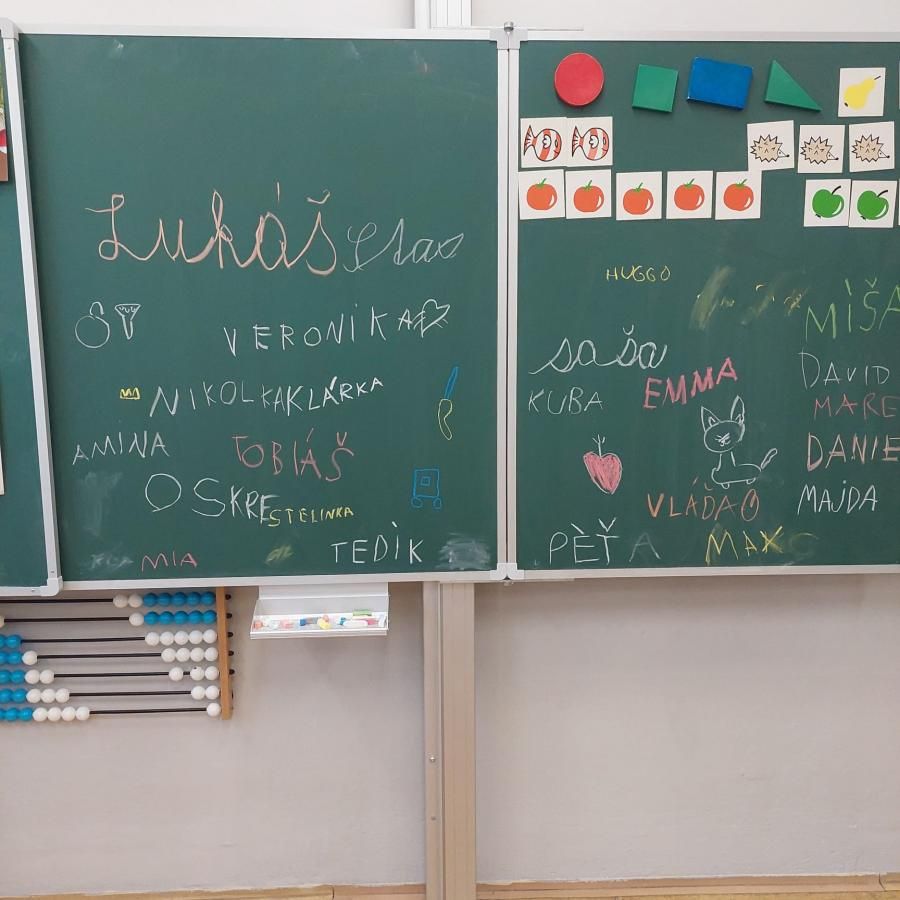 Lukáš Stas
VERONIKA
NIKOLKA KLÁRKA
AMINA TOBIÁŠ
OSKRE STELINKA
TEDIK
MIA
HUGGO
MIŠA
saša
DAVID
KUBA EMMA
MARE
DANIE
VLÁĎA MAJDA
PĚŤA MAX